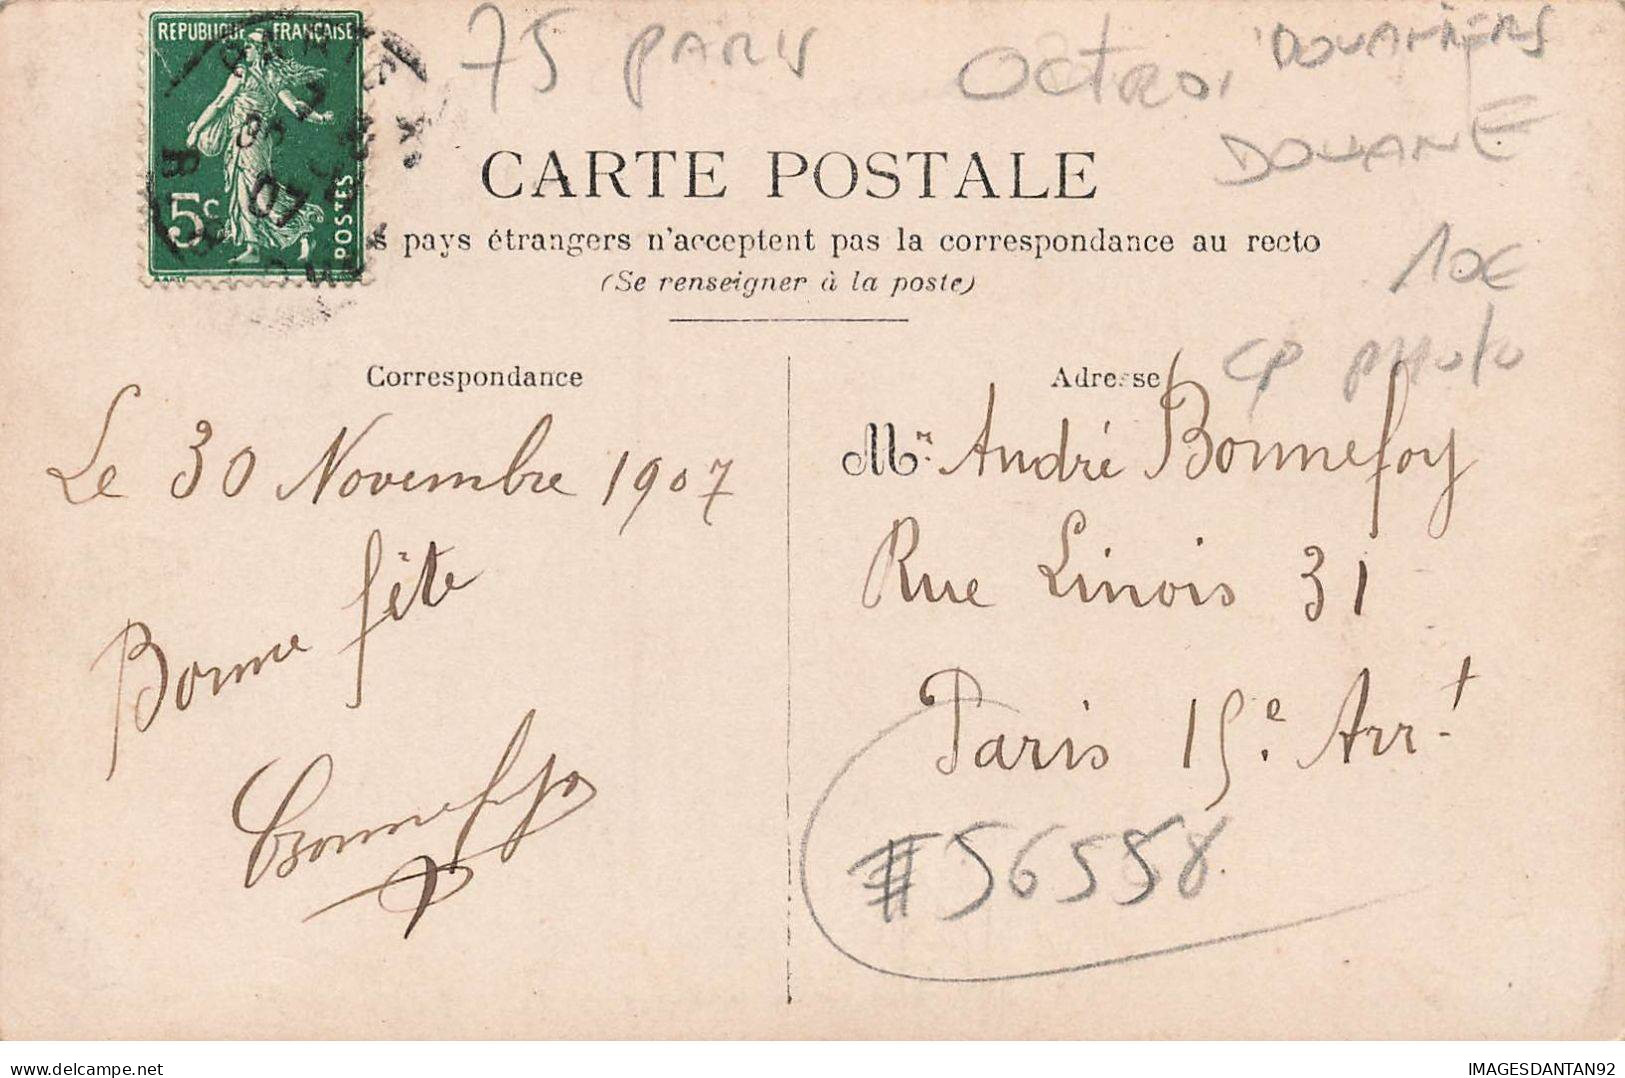 RÉPUBLIQUE FRANÇAISE
5c
POSTES
75 PARIS
OCTROI
DOUANIERS
DOUANE
CARTE POSTALE
s pays étrangers n'acceptent pas la correspondance au recto
(Se renseigner à la poste)
10€
CP PHOTO
Correspondance
Le 30 Novembre 1907
Bonne fête
Bonnefoy
Adresse
Mr. André Bonnefoy
Rue Linois 31
Paris 15e. Arrt
#56558
IMAGESDANTAN92